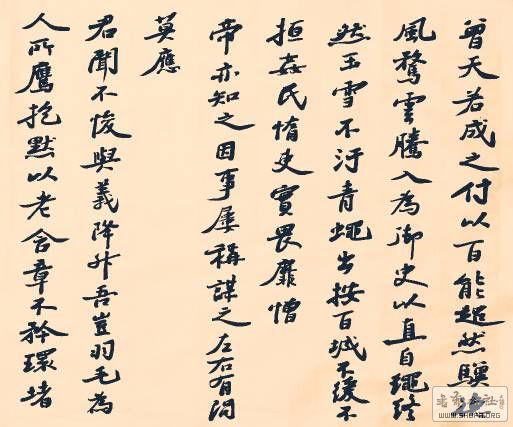 曾天若成之付以百能超然驥
風騖雲騰入為御史以直自繩終
然玉雪不汙青蠅出按百城不緩不
搄姦民惰吏實畏靡憎
帝亦知之因事屢稱謀之左右有問
莫應
君聞不悛與義降升吾豈羽毛為
人所鷹抱默以老含章不矜環堵